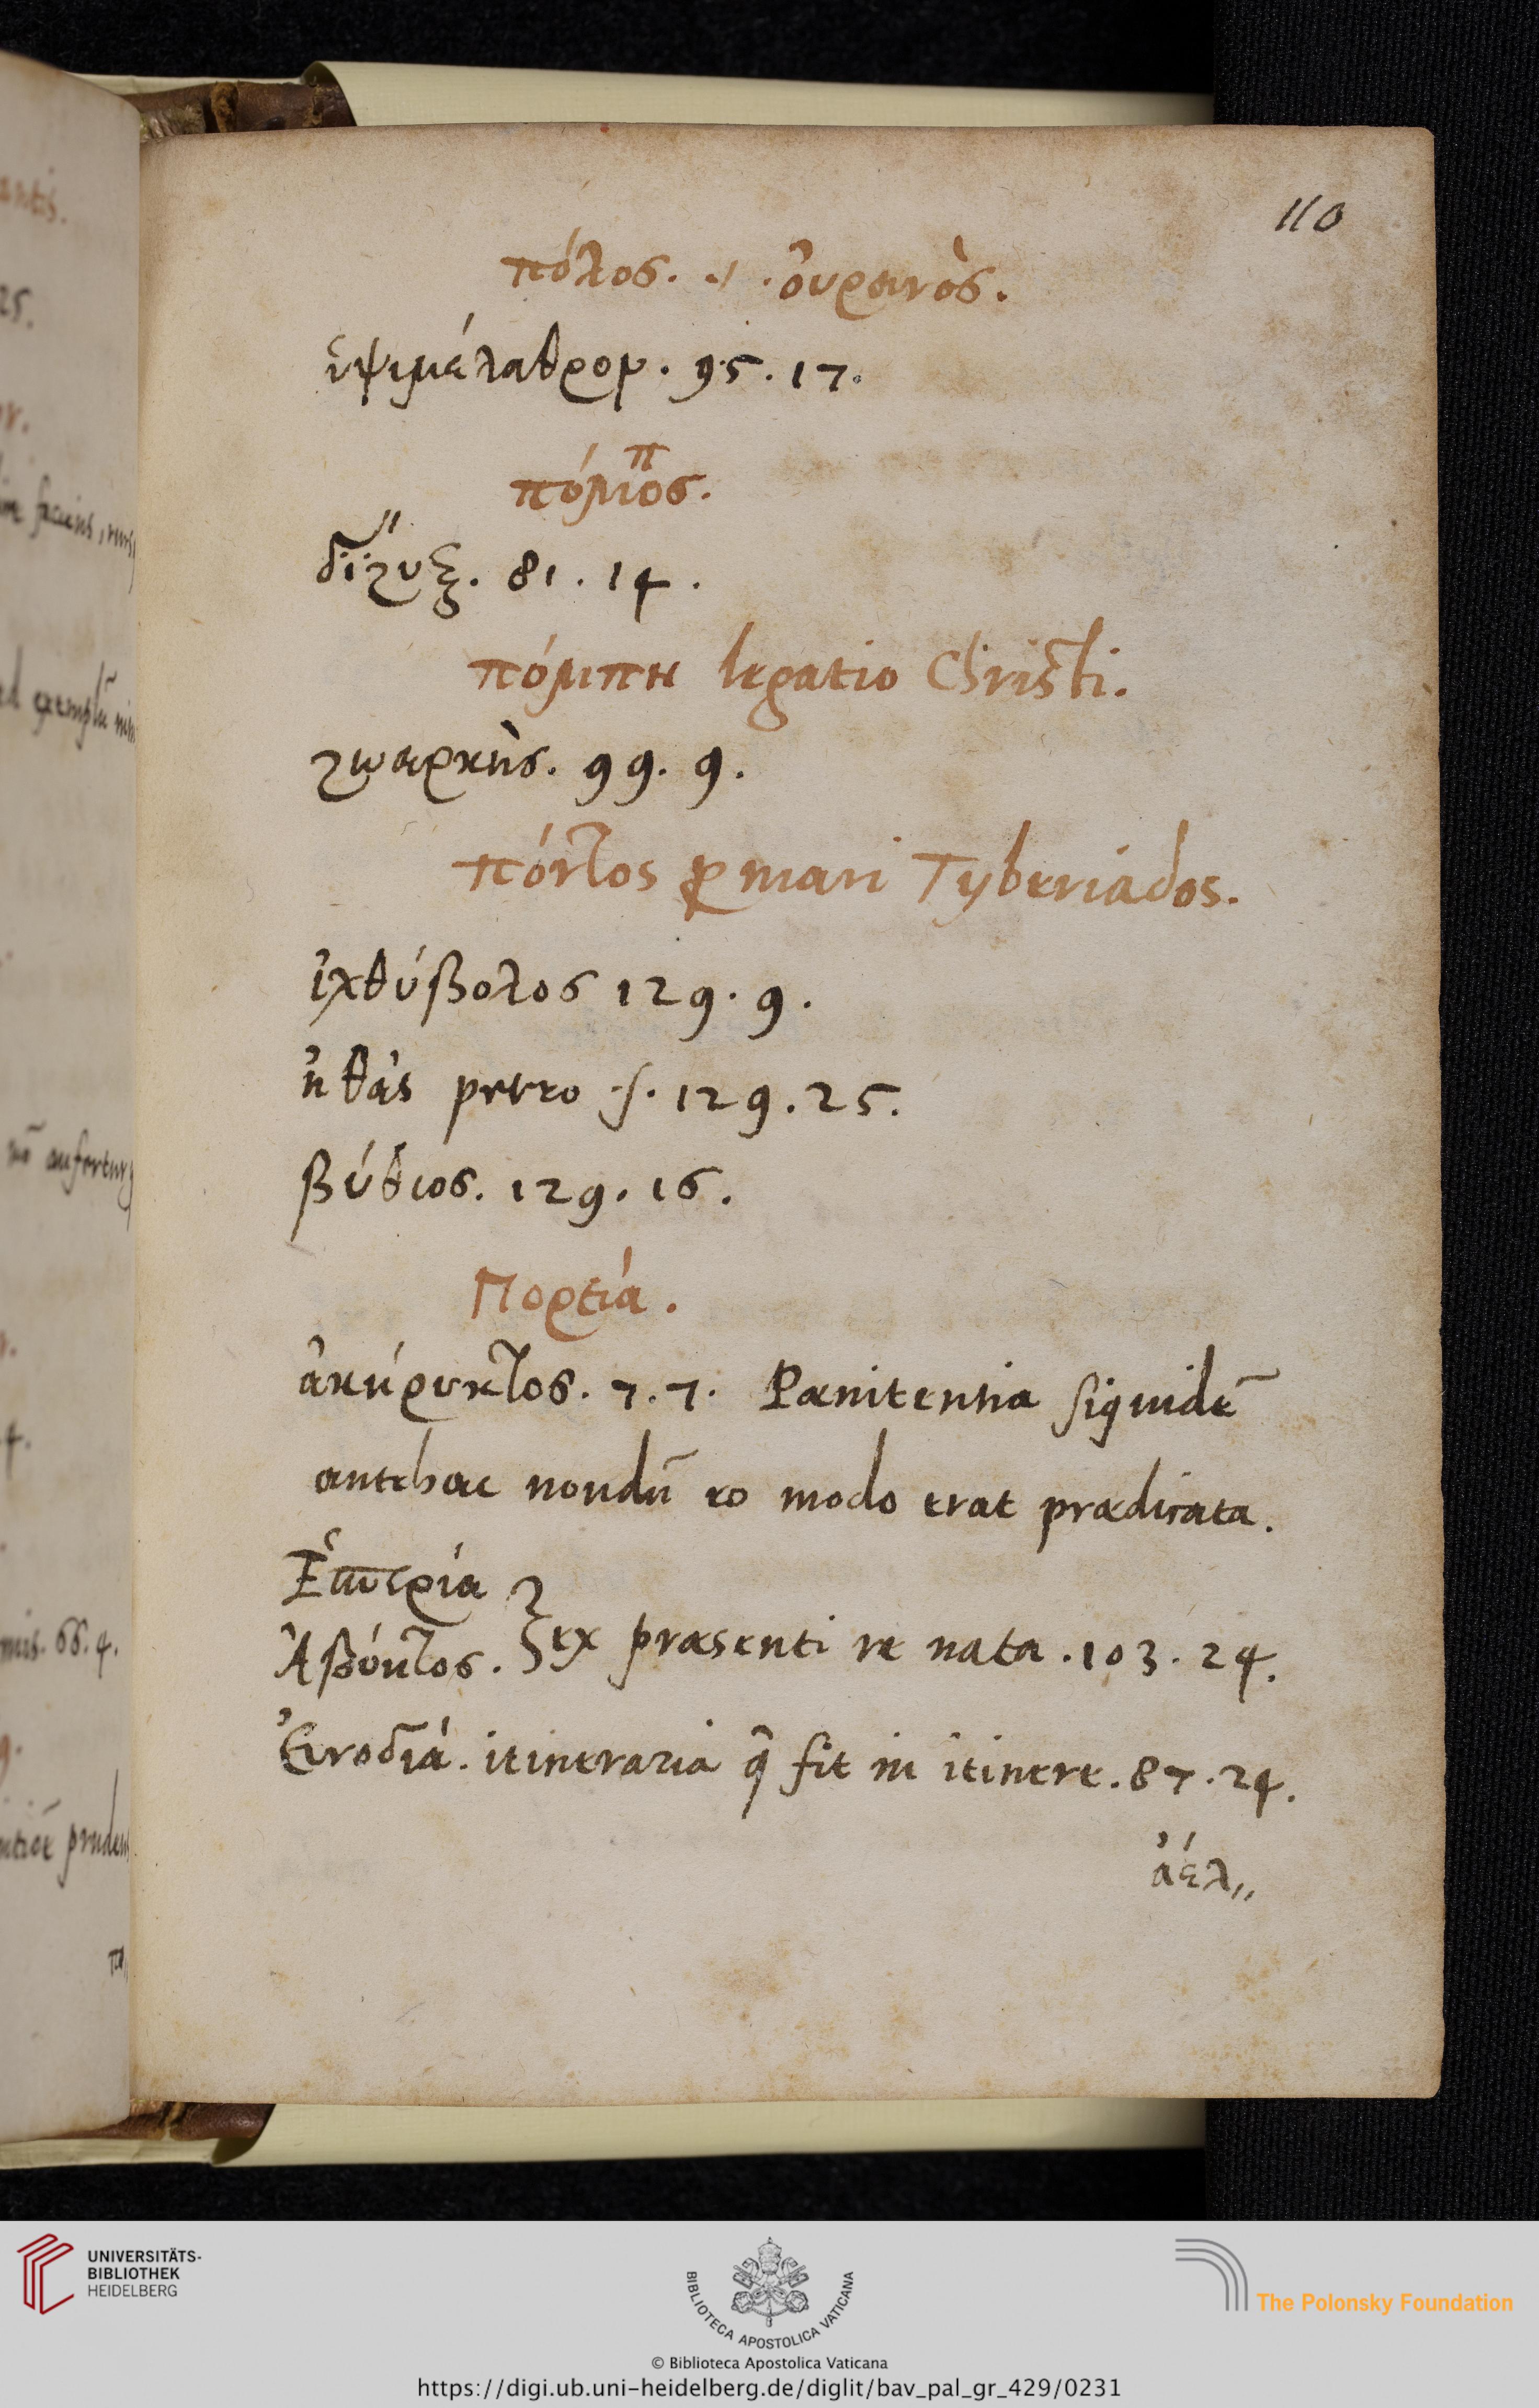 110
πόλος. .ι. ὀυρανὸς.
ὑψιμέλαθρον. 95. 17.
πόμπος.
δίζυξ. 81. 14.
πόμπη legatio Christi.
ζωαρκὴς. 99. 9.
πόντος ꝓ mari Tyberiados.
ἰχθύβολος 129. 9.
ἠθὰς petro .s. 129. 25.
βύθιος. 129. 16.
Πορεία.
ἀκήρυκτος. 7. 7. Pænitentia siquidē
antehac nondū eo modo erat prædicata.
Ἑσπερία
Ἀβούλος. ex præsenti re nata. 103. 24.
Ἐινοδιά. itineraria q̄ fit in itinere. 87. 24.
ἀέλ,,
UNIVERSITÄTS-
BIBLIOTHEK
HEIDELBERG
BIBLIOTECA APOSTOLICA VATICANA
The Polonsky Foundation
© Biblioteca Apostolica Vaticana
https://digi.ub.uni-heidelberg.de/diglit/bav_pal_gr_429/0231